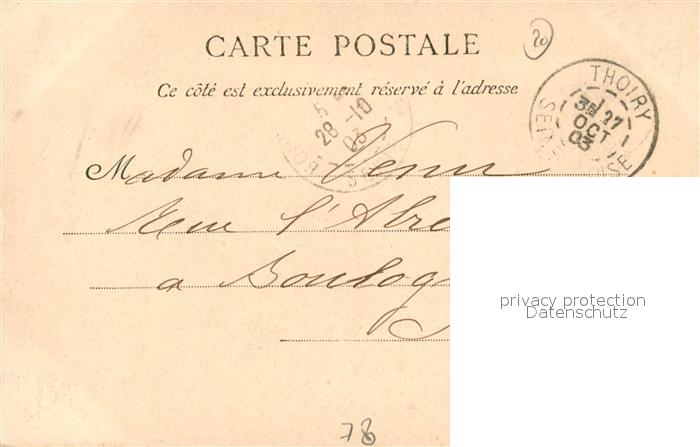 CARTE POSTALE
20
Ce côté est exclusivement réservé à l'adresse
THOIRY
3E 27
OCT
03
28 -10
03
Madame
Rue l'Abre
a Boulog
privacy protection
Datenschutz
78